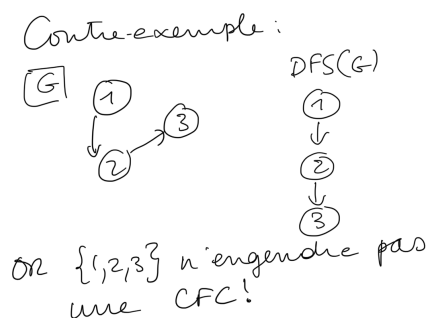 Contre-exemple :
G
1
2
3
DFS(G)
1
2
3
or {1,2,3} n'engendre pas
une CFC!